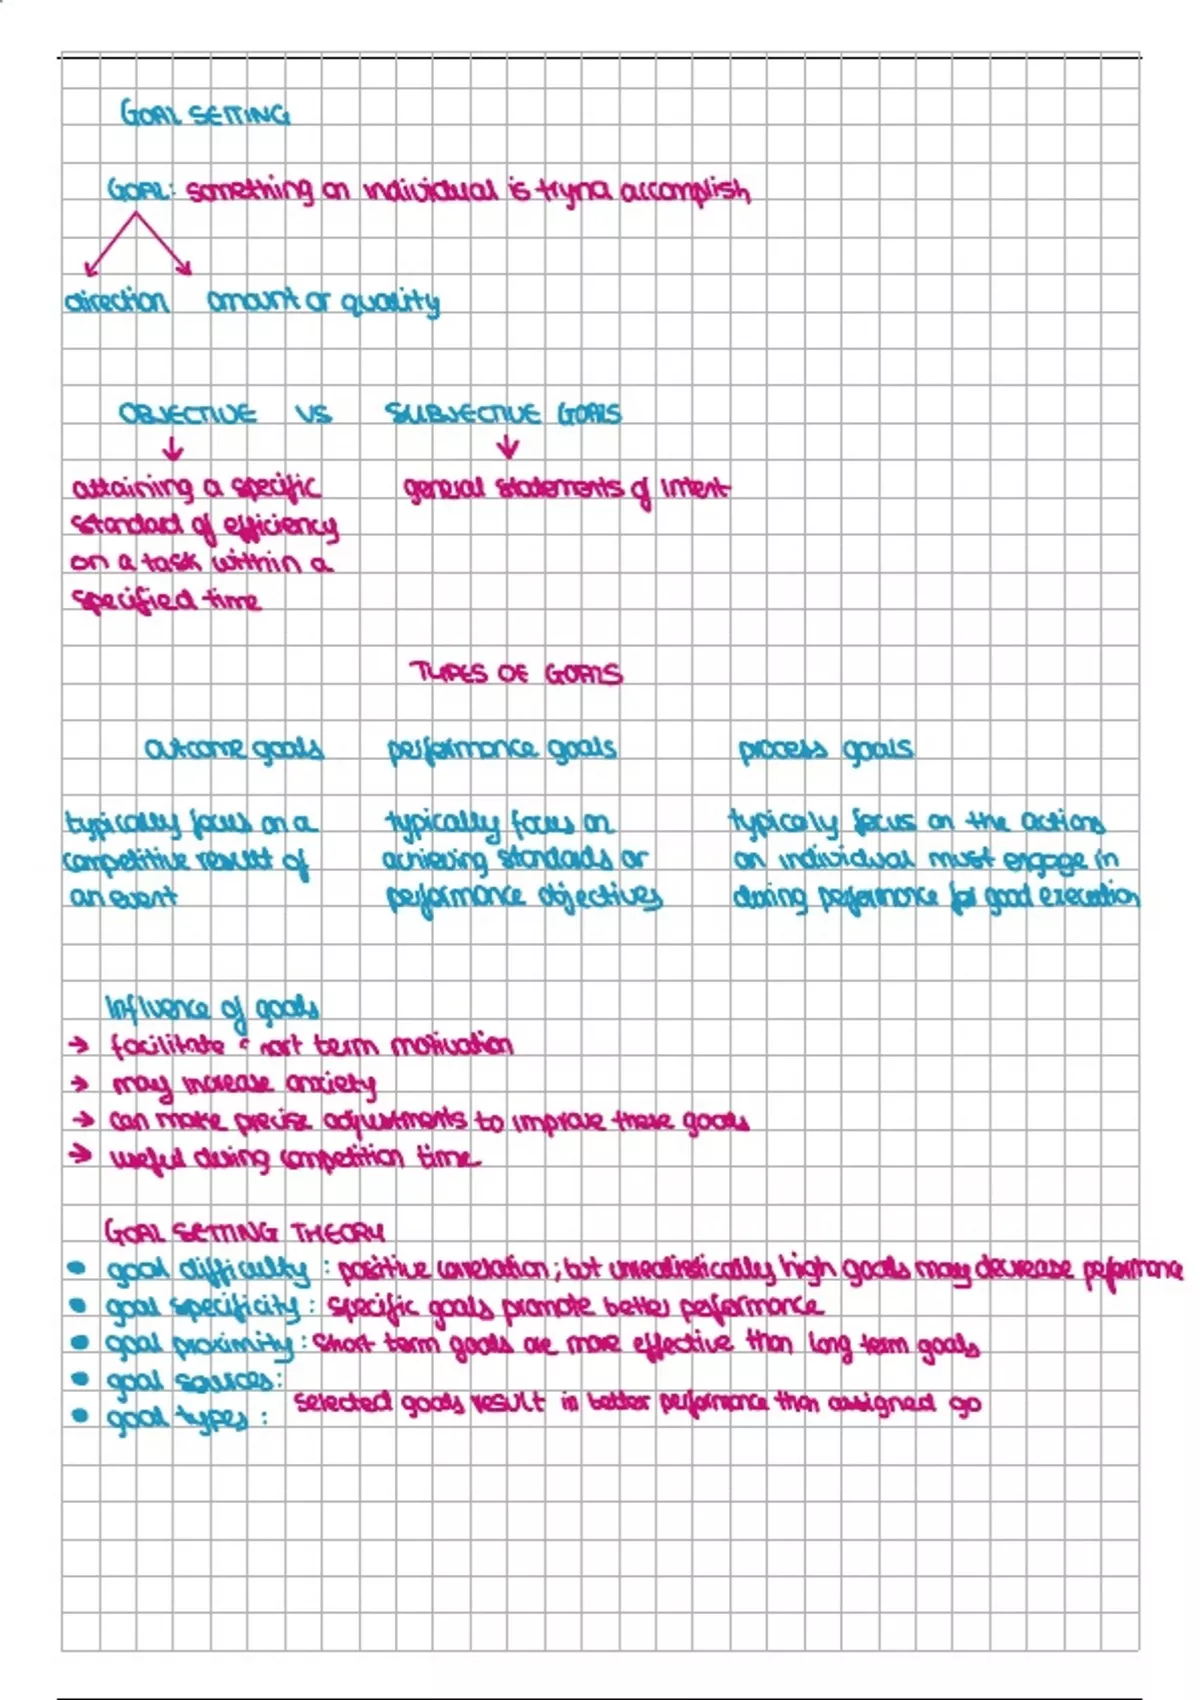 GOAL SETTING
GOAL: something an individual is tryna accomplish
direction amount or quality
OBJECTIVE VS SUBJECTIVE GOALS
attaining a specific general statements of intent
standard of efficiency
on a task within a
specified time
TYPES OF GOALS
outcome goals performance goals process goals
typically focus on a typically focus on typicaly focus on the actions
competitive result of achieving standards or an individual must engage in
an event performance objectives during performance for good execution
Influence of goals
→ facilitate short term motivation
→ may increase anxiety
→ can make precise adjustments to improve these goals
→ useful during competition time
GOAL SETTING THEORY
• goal difficulty : positive correlation; but unrealistically high goals may decrease performance
• goal specificity : specific goals promote better performance
• goal proximity : short term goals are more effective than long term goals
• goal sources:
selected goals result in better performance than assigned go
• goal types :